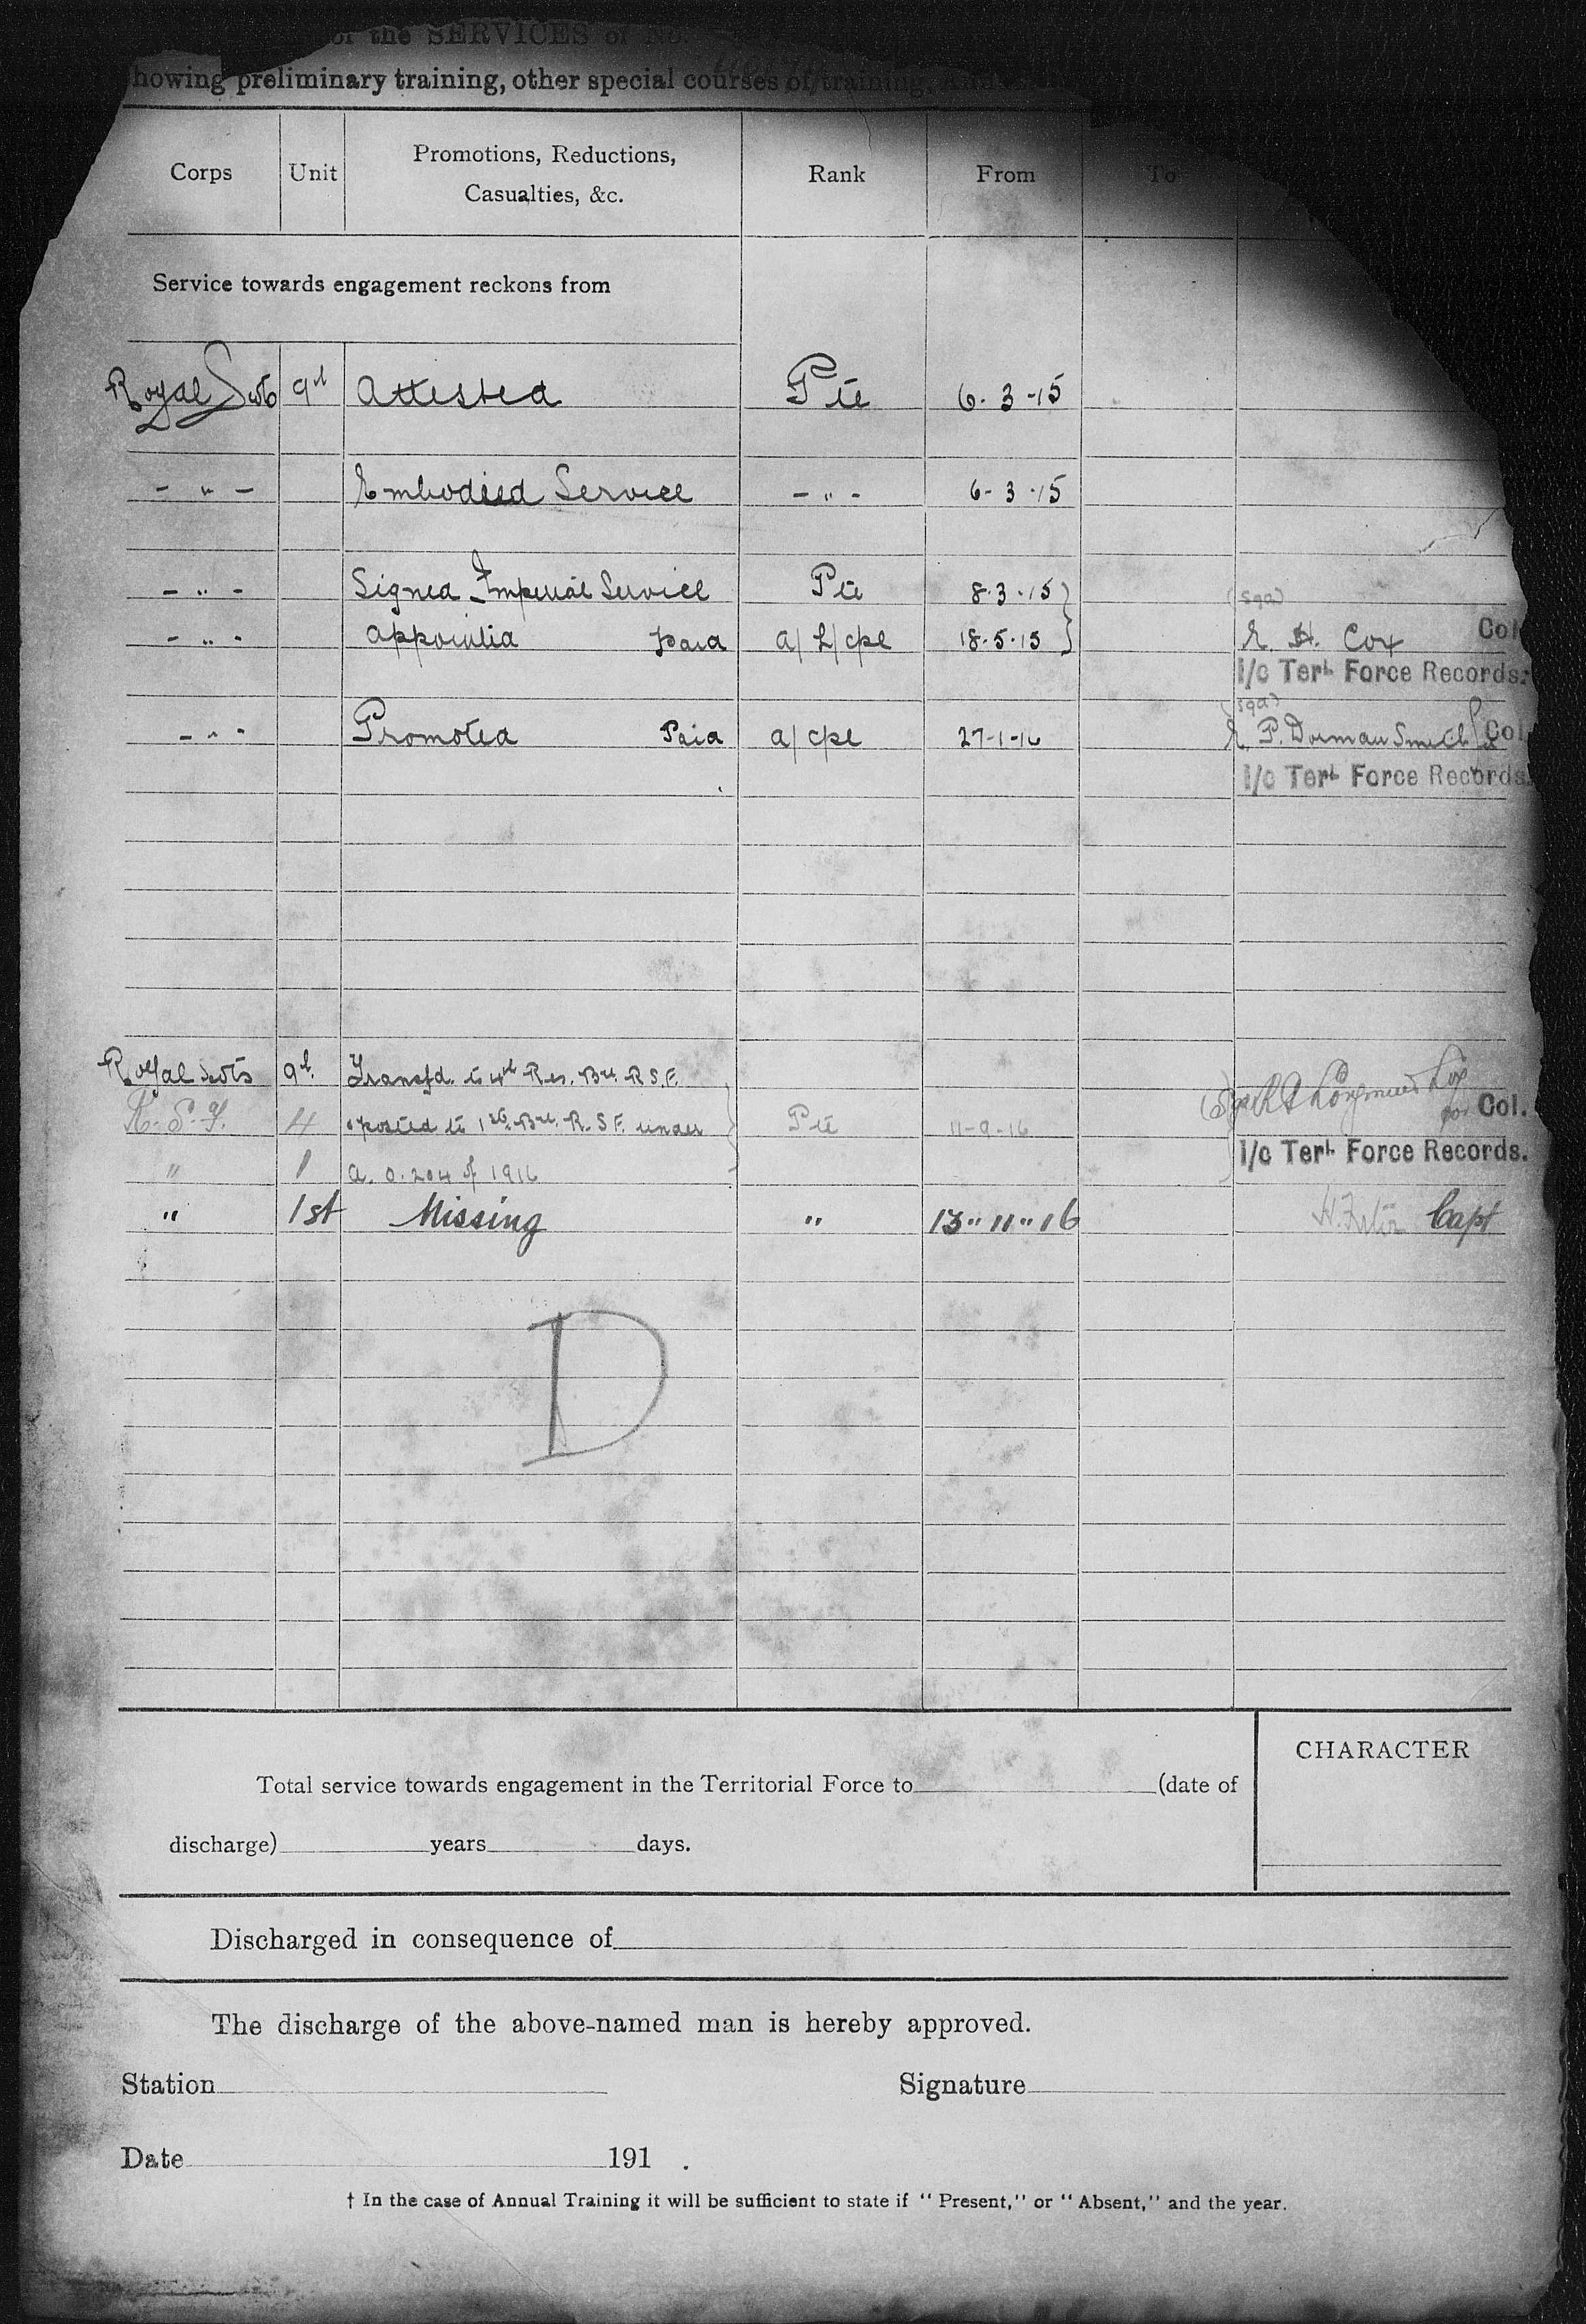 of the SERVICES of No.
howing preliminary training, other special courses of training,
Corps Unit Promotions, Reductions, Rank From To
Casualties, &c.
Service towards engagement reckons from
Royal Scots 9th Attested Pte 6-3-15
- " - Embodied Service - " - 6-3-15
- " - Signed Imperial Service Pte 8-3-15 (sgd)
- " - Appointed paid a/L/cpl 18-5-15 E. H. Cox Col
i/c Terl. Force Records.
(sgd)
- " - Promoted Paid a/cpl 27-1-16 E. P. Dorman Smith Col.
i/c Terl. Force Records.
Royal Scots 9th Transfd. to 4th Res. Bn. R.S.F.
R.S.F. 4 & posted to 1st. Bn. R.S.F. under Pte 11-9-16 for Col.
" 1 A.O. 204 of 1916 i/c Terl. Force Records.
" 1st Missing " 13"11"16 Capt
D
CHARACTER
Total service towards engagement in the Territorial Force to (date of
discharge) years days.
Discharged in consequence of
The discharge of the above-named man is hereby approved.
Station Signature
Date 191 .
† In the case of Annual Training it will be sufficient to state if "Present," or "Absent," and the year.